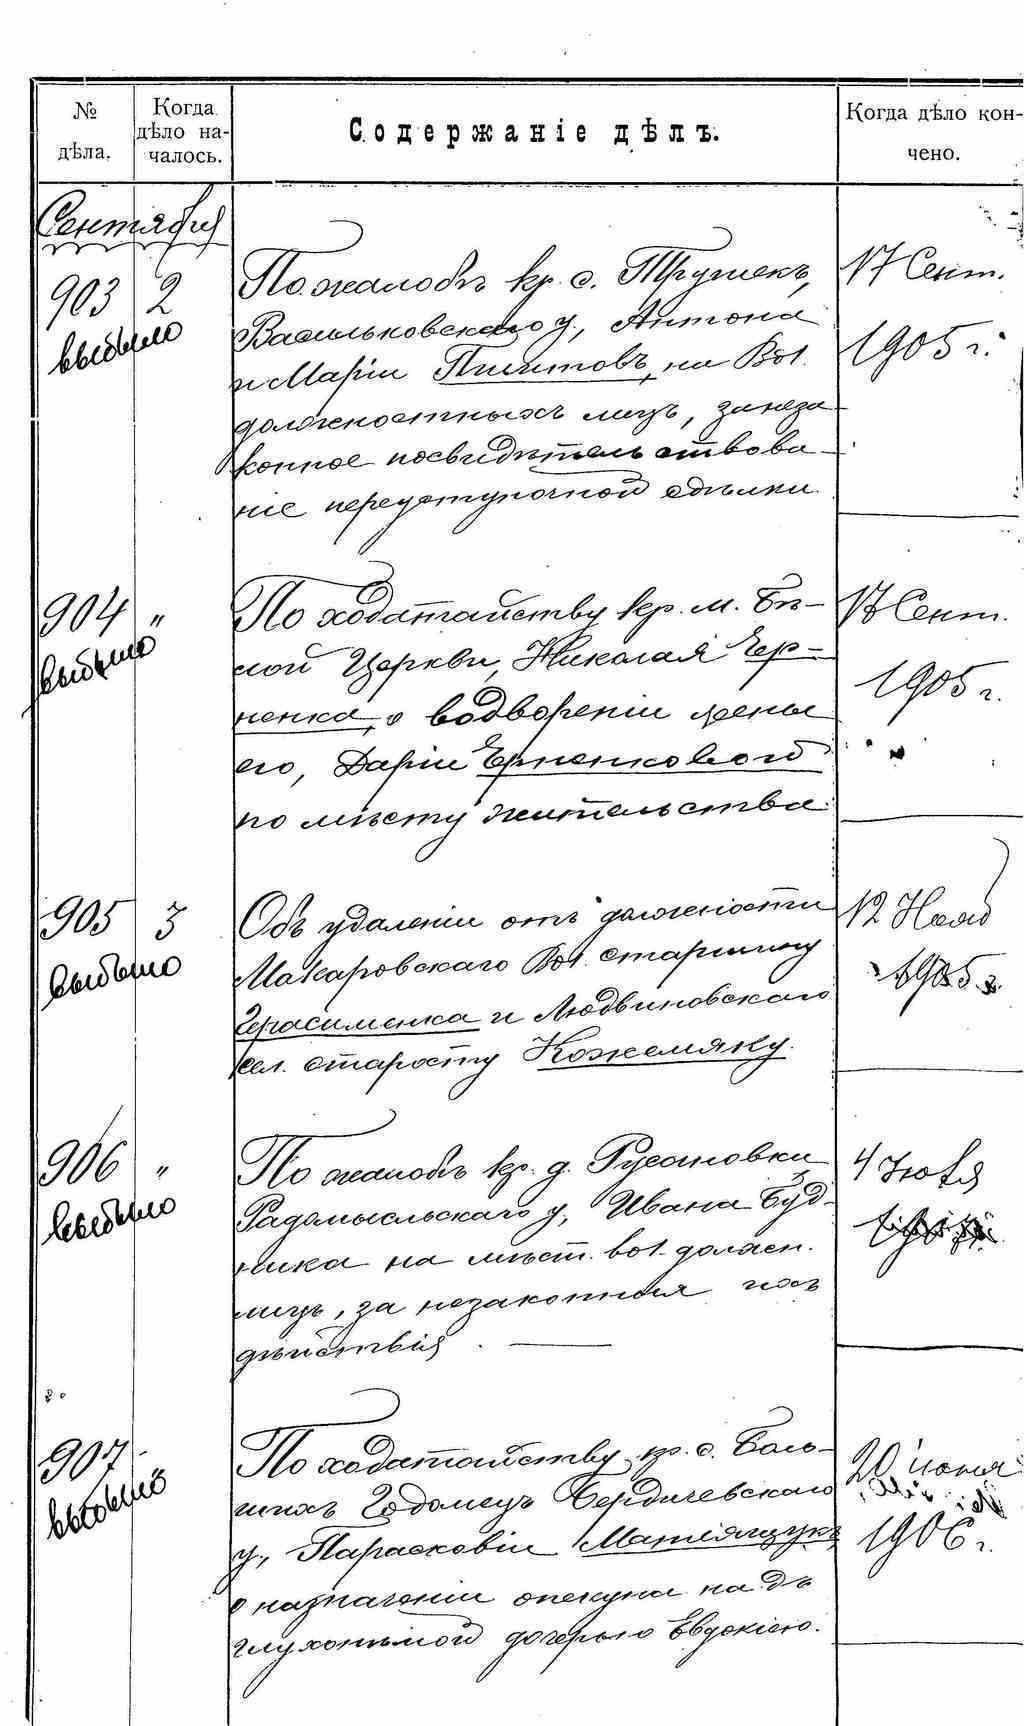 № дѣла.
Когда дѣло началось.
Содержаніе дѣлъ.
Когда дѣло кончено.
Сентября
903 2
выбыло
По жалобѣ кр. с. Трушекъ,
Васильковскаго у., Антона
и Маріи на Вол.
должностныхъ лицъ, за неза-
конное посвидѣтельствова-
ніе переуступочной сдѣлки.
17 Сент.
1905 г.
904 "
выбыло
По ходатайству кр. м. Бѣ-
лой Церкви, Николая Чер-
ненка, о водвореніи жены
его, Даріи Черненковой
по мѣсту жительства.
17 Сент.
1905 г.
905 3
выбыло
Объ удаленіи отъ должности
Макаровскаго Вол. старшину
Герасименка и Людвиновскаго
сел. старосту Кожемяку.
12 Нояб
1905 г.
906 "
выбыло
По жалобѣ кр. д. Русановки
Радомысльскаго у., Ивана Буд-
ника на мѣст. вол. должн.
лицъ, за незаконныя ихъ
дѣйствія.
4 Іюля
907 "
выбыло
По ходатайству кр. с. Боль-
шихъ Гадомецъ Бердичевскаго
у., Парасковіи Матіящукъ
о назначеніи опекуна надъ
глухонѣмой дочерью Евдокіею.
20 іюня
1906 г.